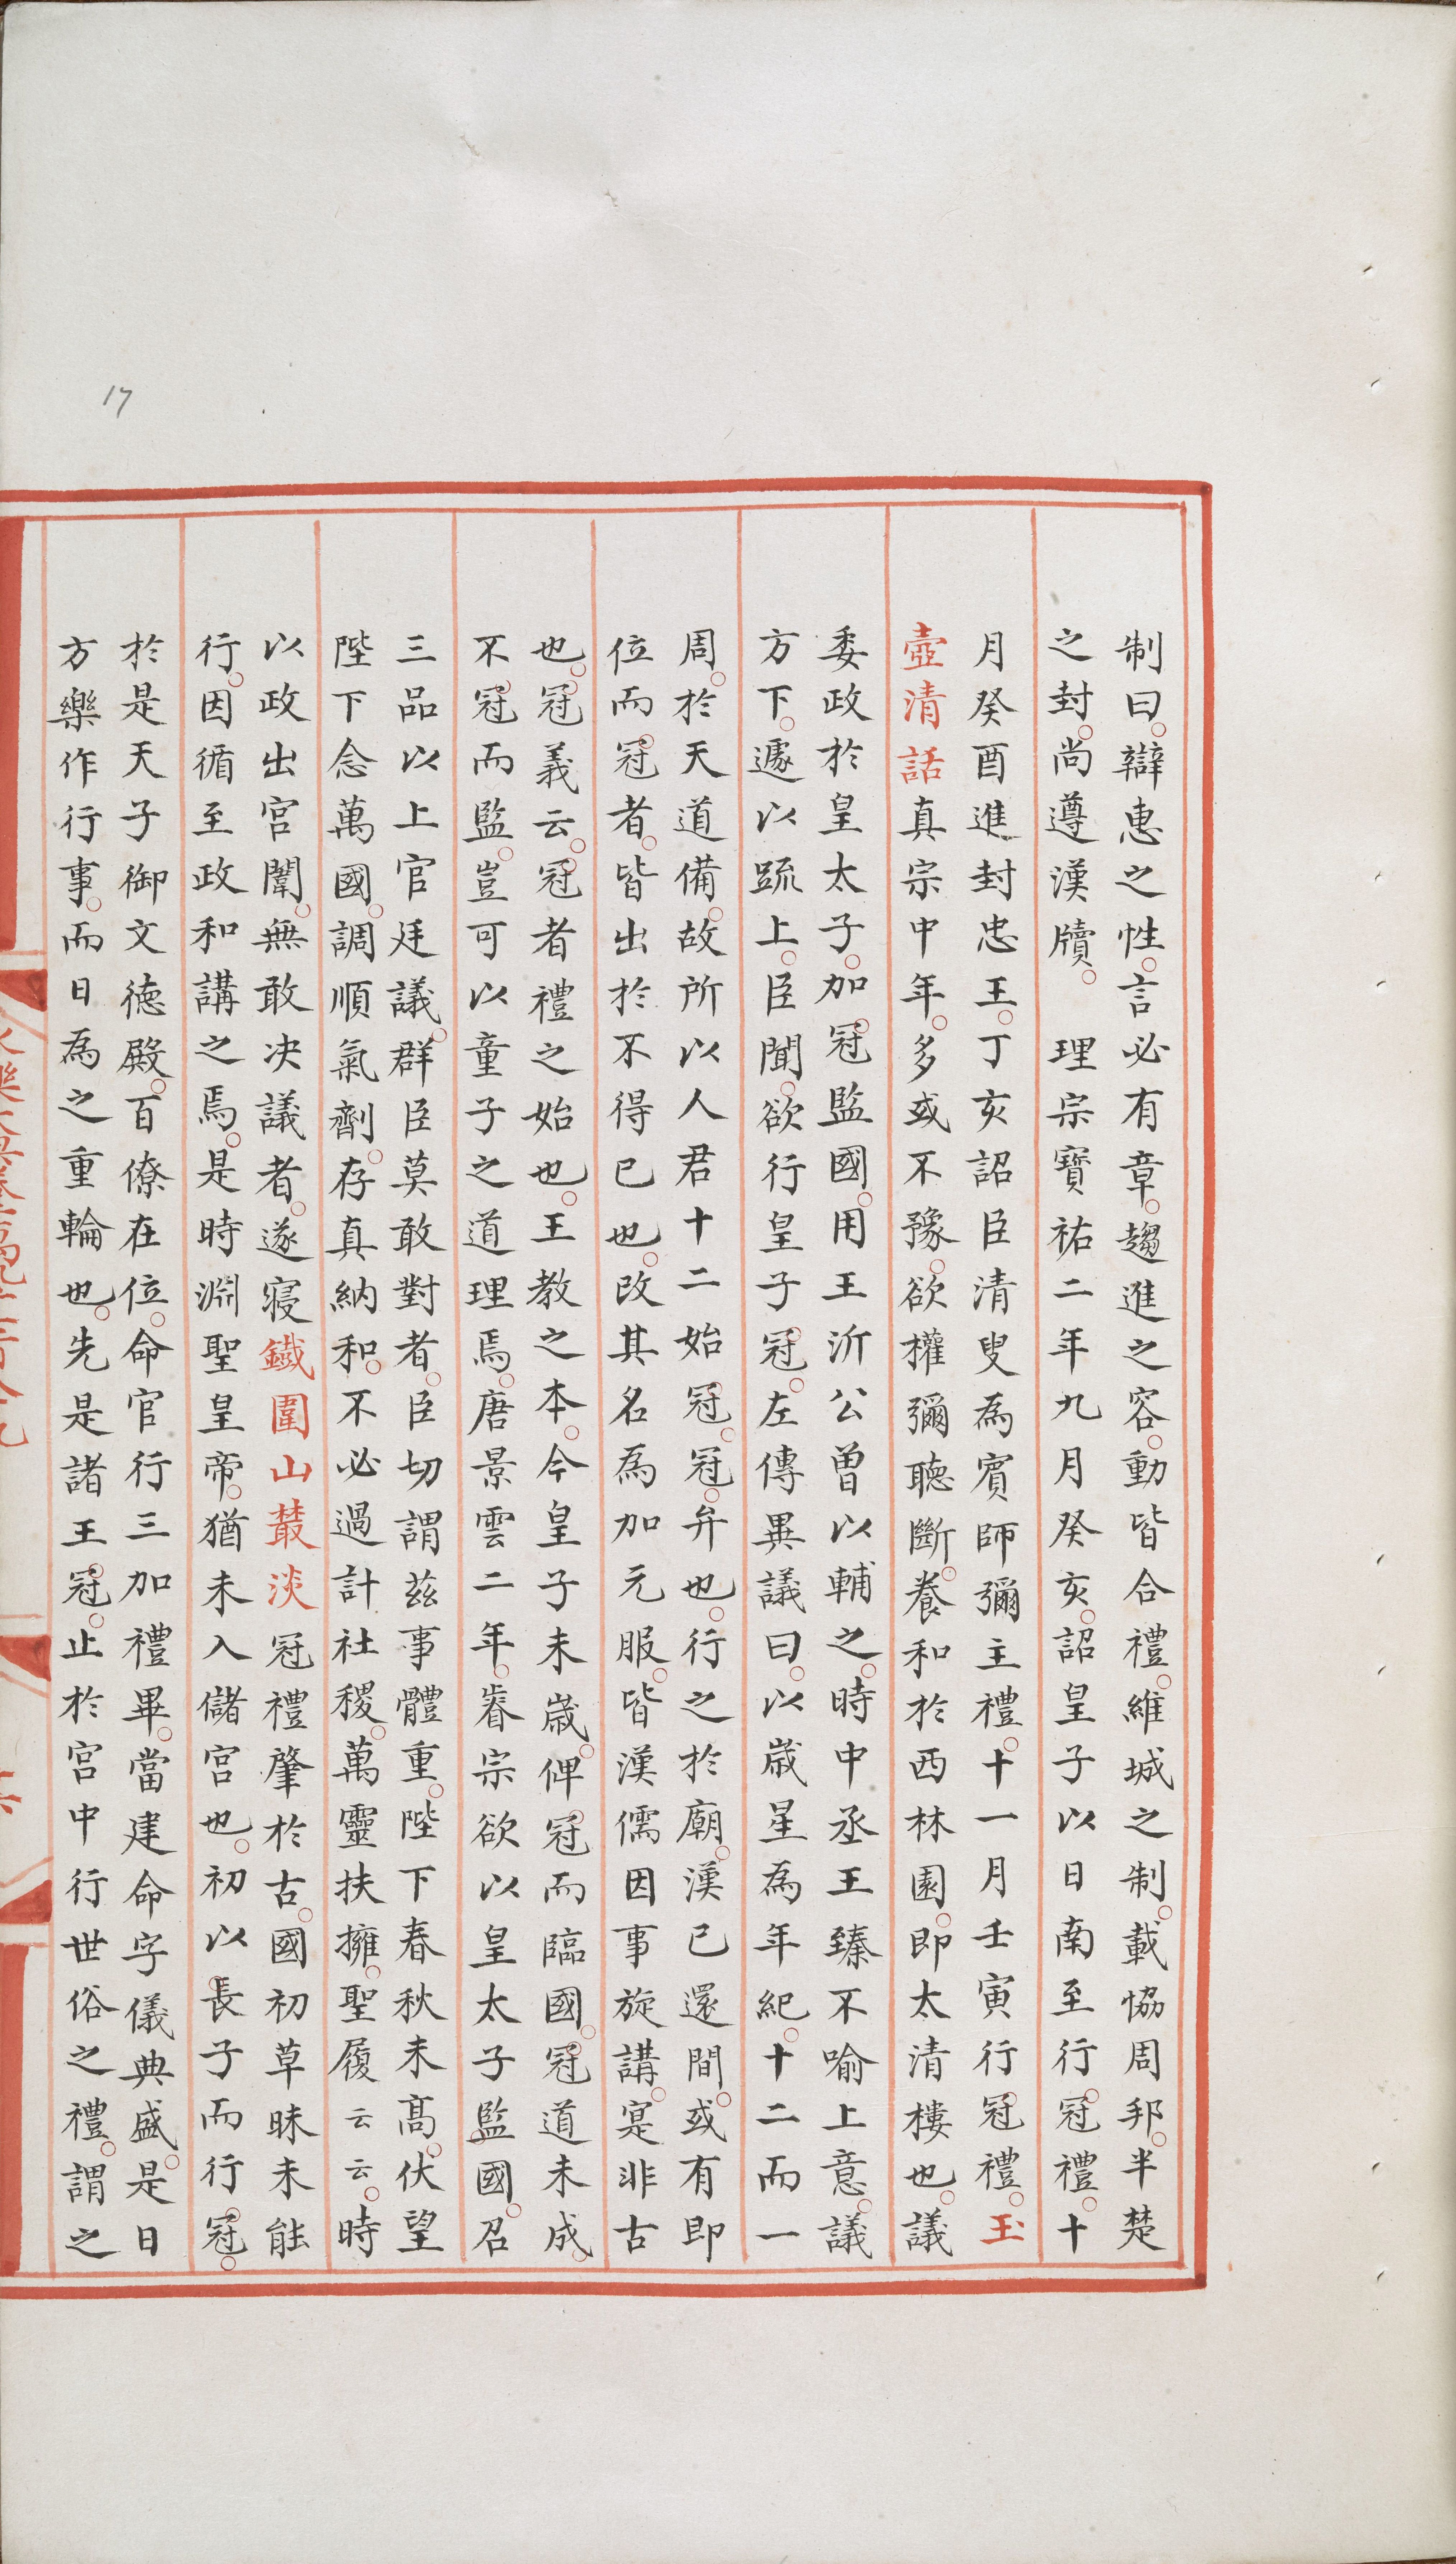 制曰辯惠之性言必有章趨進之容動皆合禮維城之制載協周邦半楚
之封尚遵漢牘　理宗寶祐二年九月癸亥詔皇子以日南至行冠禮十
月癸酉進封忠王丁亥詔臣清叟為賓師彌主禮十一月壬寅行冠禮玉
壺清話真宗中年多或不豫欲權彌聽斷養和於西林園即太清樓也議
委政於皇太子加冠監國用王沂公曾以輔之時中丞王臻不喻上意議
方下遽以䟽上臣聞欲行皇子冠左傳異議曰以歲星為年紀十二而一
周於天道備故所以人君十二始冠冠弁也行之於廟漢已還間或有即
位而冠者皆出於不得已也改其名為加元服皆漢儒因事旋講寔非古
也冠義云冠者禮之始也王教之本今皇子未歲俾冠而臨國冠道未成
不冠而監豈可以童子之道理焉唐景雲二年睿宗欲以皇太子監國召
三品以上官廷議群臣莫敢對者臣切謂茲事體重陛下春秋未高伏望
陛下念萬國調順氣劑存真納和不必過計社稷萬靈扶擁聖履云云時
以政出宮闈無敢决議者遂寢鐵圍山叢淡冠禮肇於古國初草昧未能
行因循至政和講之焉是時淵聖皇帝猶未入儲宮也初以長子而行冠
於是天子御文德殿百僚在位命官行三加禮畢當建命字儀典盛是日
方樂作行事而日為之重輪也先是諸王冠止於宮中行世俗之禮謂之
17